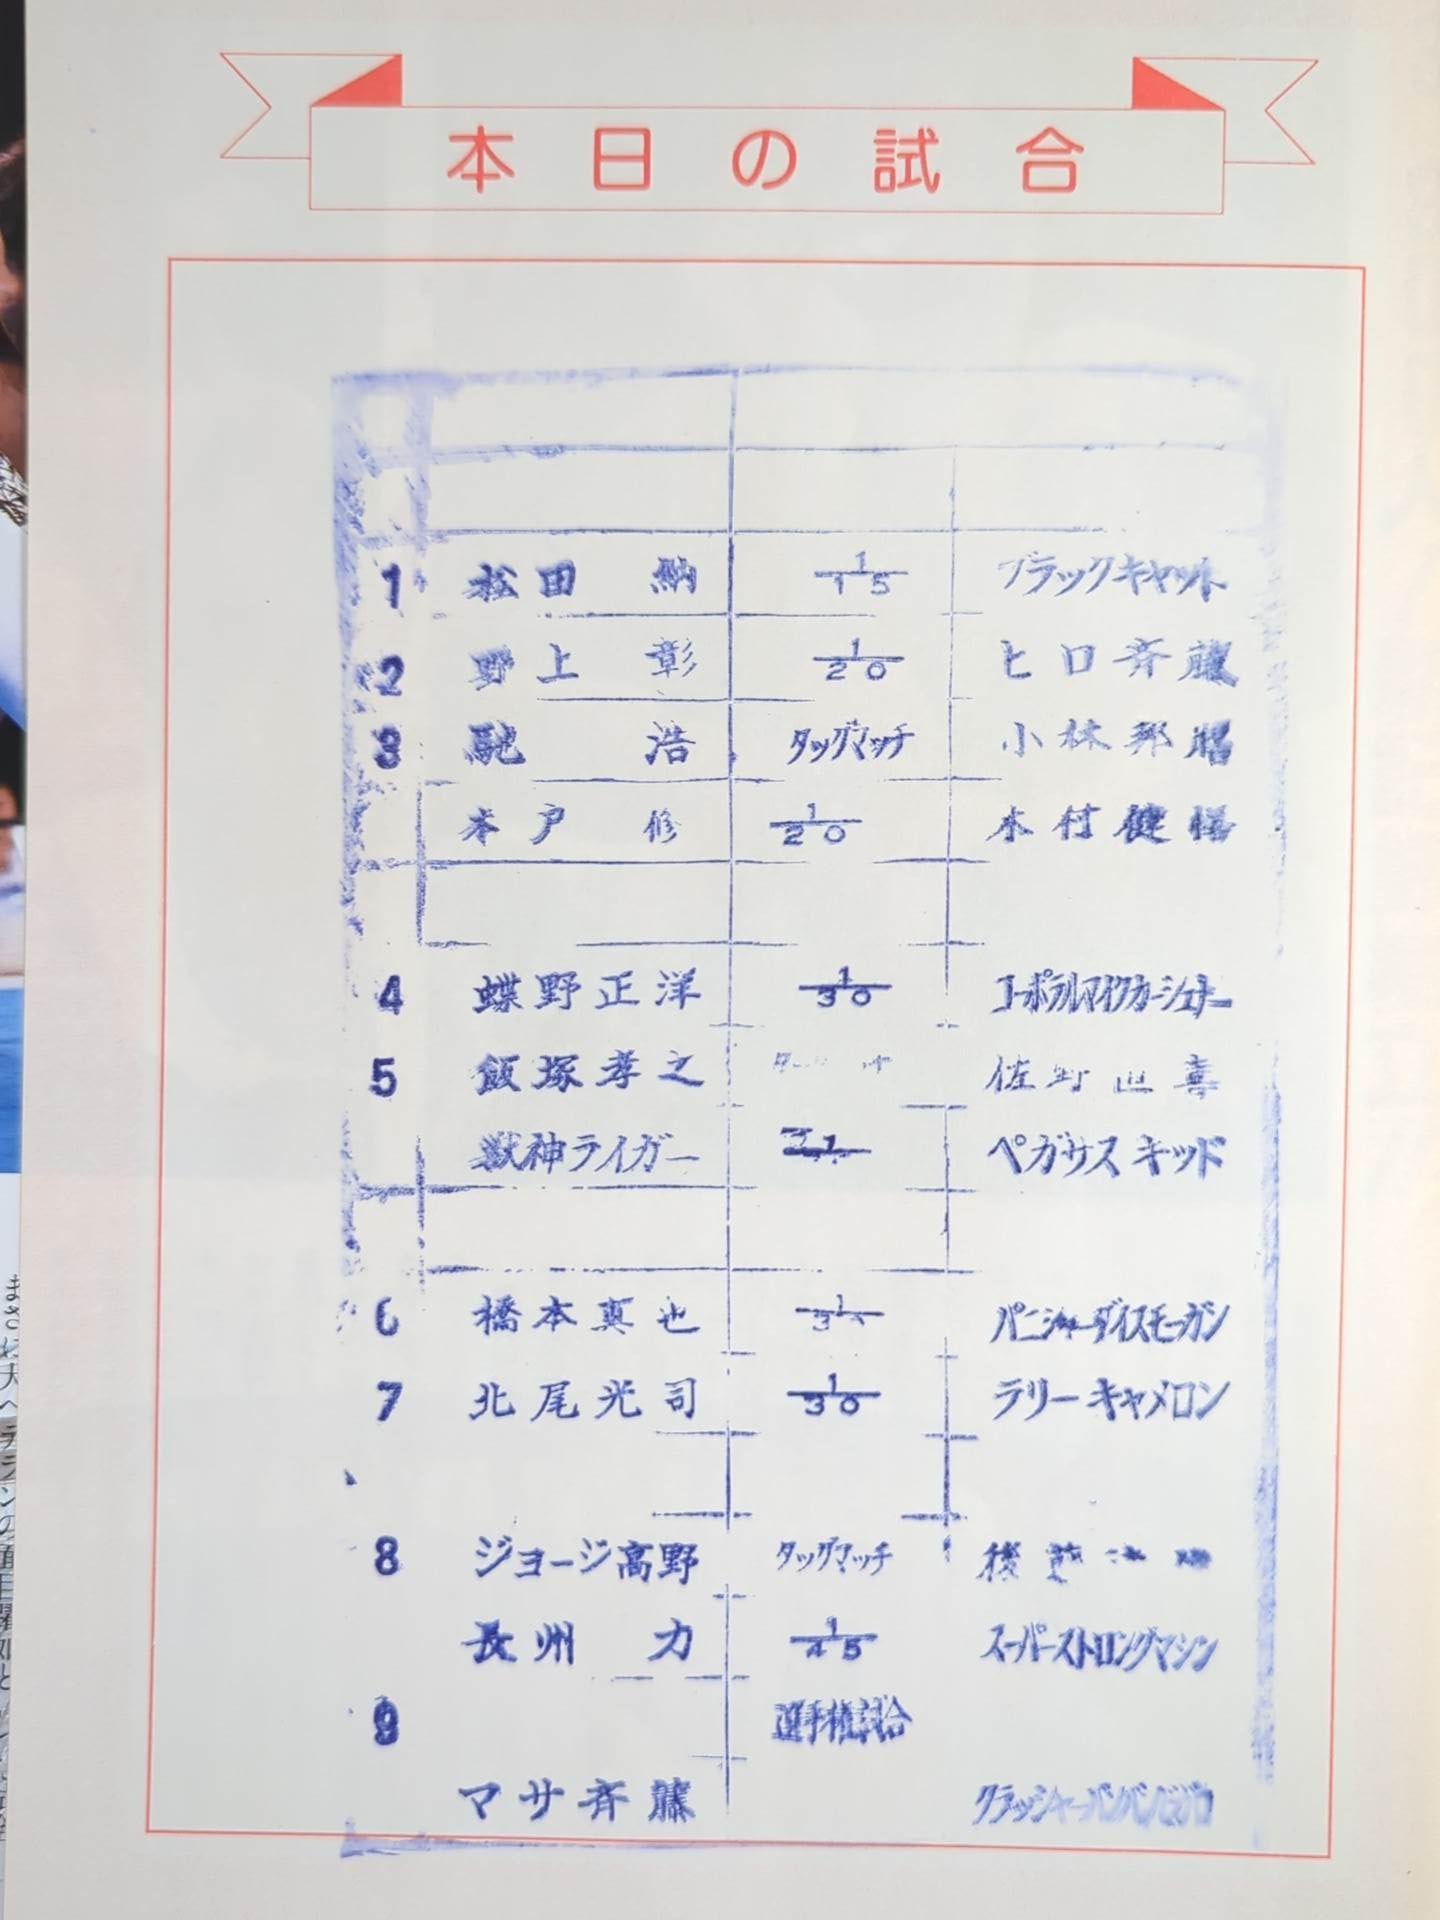 本日の試合
1 松田 納 1/15 ブラックキャット
2 野上 彰 1/20 ヒロ斉藤
3 馳 浩 タッグマッチ 小林邦昭
木戸 修 1/20 木村健悟
4 蝶野正洋 1/30 コーポラルマイクカーシュナー
5 飯塚孝之 佐野直喜
獣神ライガー 1 ペガサスキッド
6 橋本真也 1/3 パニッシャーダイスモーガン
7 北尾光司 1/30 ラリーキャメロン
8 ジョージ高野 タッグマッチ 後藤
長州 力 1/45 スーパーストロングマシン
9 選手権試合
マサ斉藤 クラッシャーバンバンビガロ